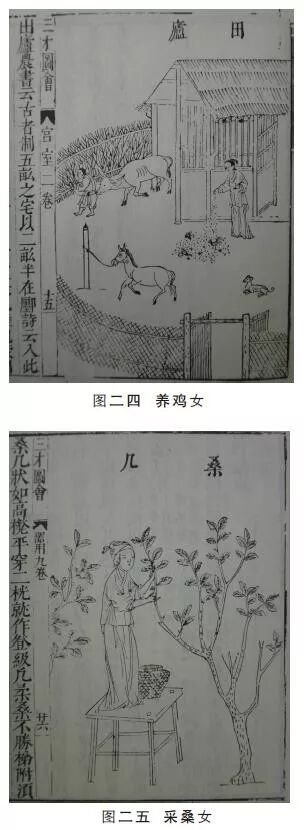 田廬
三才圖會 宮室二卷 十五
田廬農書云古者制五畝之宅以二畝半在廛詩云入此
图二四 养鸡女
桑几
三才圖會 器用九卷 廿六
桑几狀如高櫈平穿二桄就作登級凡柔桑不勝梯附須
图二五 采桑女